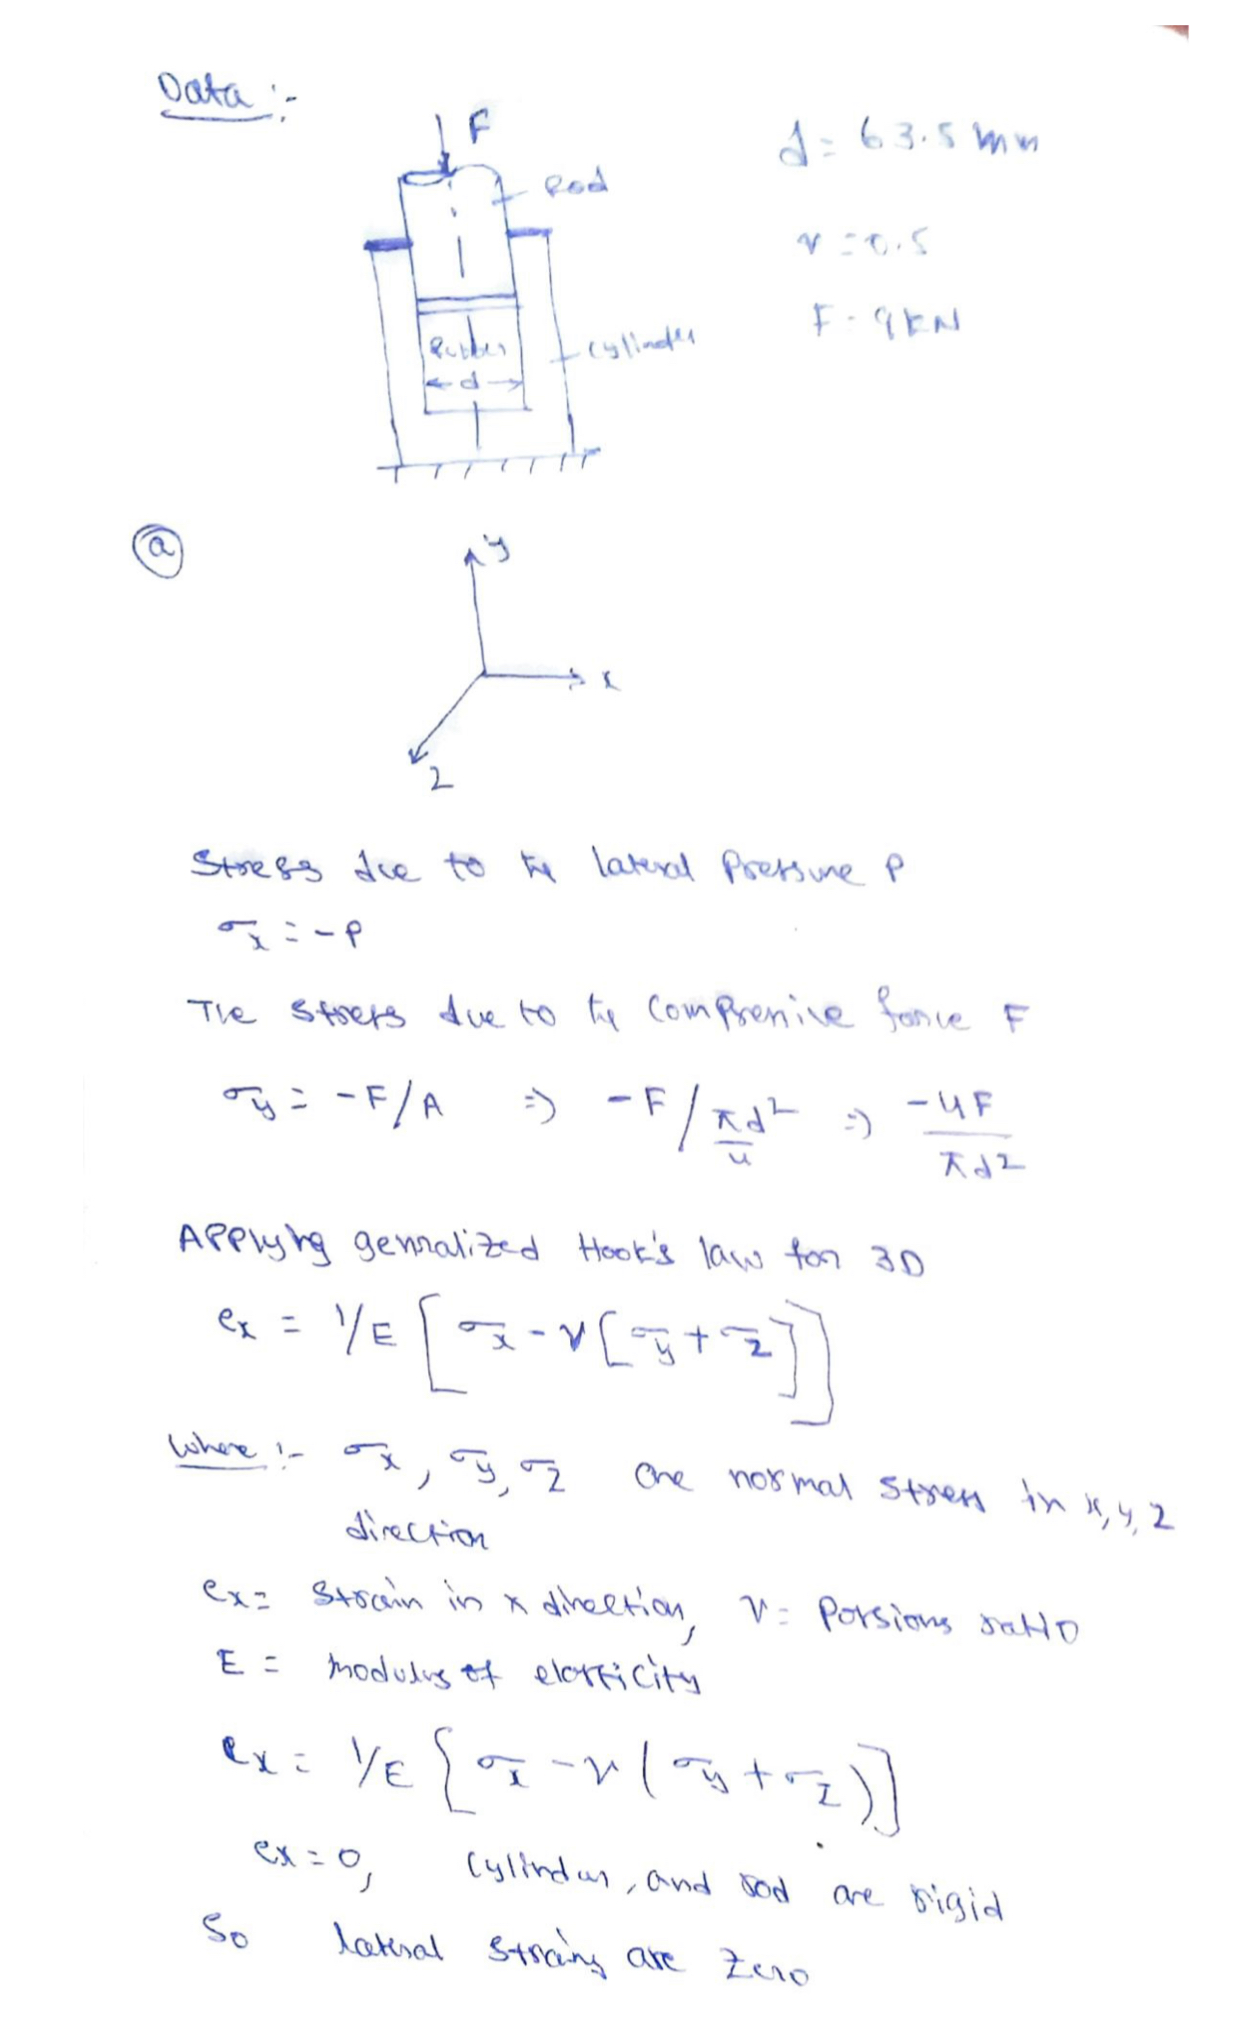 Data :-
F
d = 63.5 mm
Rod
ν = 0.5
F = 9 kN
Rubber
cylinder
d
(a)
y
x
z
Stress due to the lateral Pressure P
σx = -P
The stress due to the compressive force F
σy = -F/A => -F/πd²/4 => -4F/πd²
Applying genralized Hook's law for 3D
ex = 1/E [σx - ν[σy + σz]]
Where :- σx, σy, σz are normal stress in x, y, z
direction
ex = Strain in x direction, ν = Porsions ratio
E = modulus of elasticity
ex = 1/E {σx - ν(σy + σz)]
ex = 0, cylinder, and rod are rigid
So lateral strains are zero